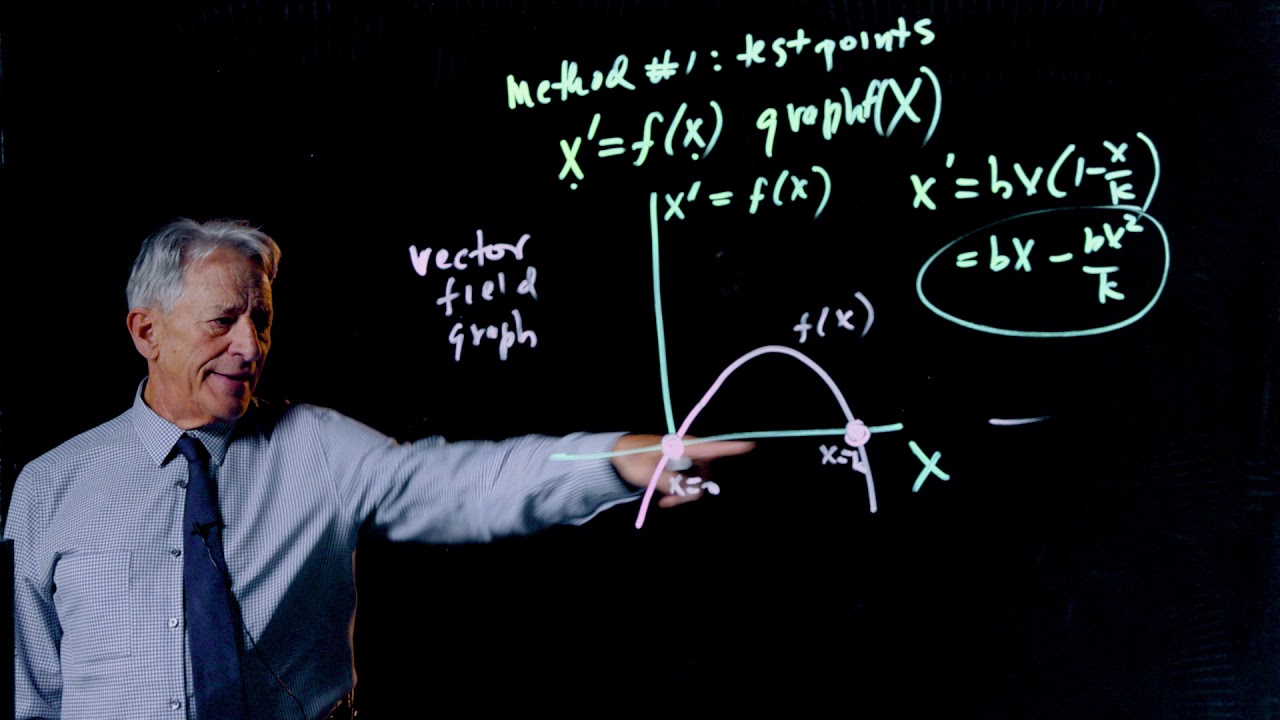 Method #1: test points
x' = f(x) graph f(x)
x' = f(x)
x' = bx(1-x/k)
= bx - bx²/k
vector
field
graph
f(x)
x=0
x=k
X